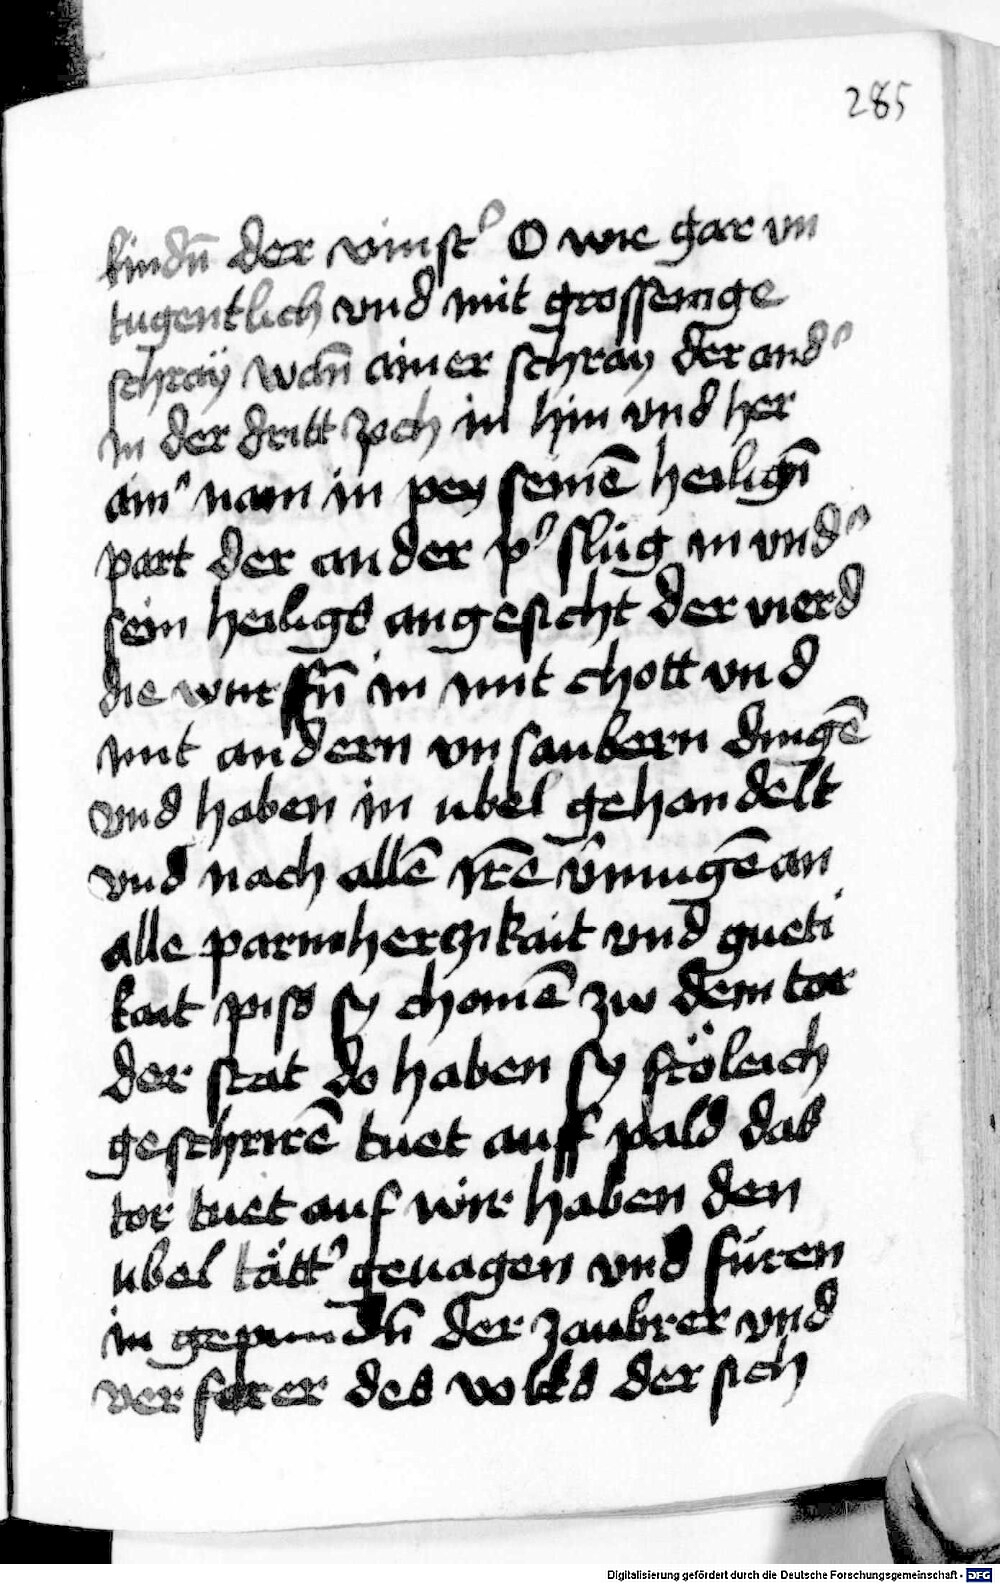 285
kindn̄ der vinst᾽ O wie gar vn
tugentlich vnd mit grossemge
schray wan̄ ainer schray der and᾽
in der dritt zoch in hin vnd her
ain᾽ nam in pey seinē heilign̄
part der ander p᾽ slůg in vnd᾽
sein heiligs angesicht der vierd
die wurffn̄ in mit chott vnd
mit andern vnsaubern dingē
vnd haben in ubel gehandelt
vnd nach allē yrē v̄mugē an
alle parmherczikait vnd gueti
kait piss sy chomē zw dem tor
der stat do haben sy fröleich
geschrirē tuet auff pald das
tor tuet auf wir haben den
ubel tätt᾽ geuagen vnd füren
in gepundn̄ der zaubrer vnd
verferer des volks der sich
Digitalisierung gefördert durch die Deutsche Forschungsgemeinschaft - DFG